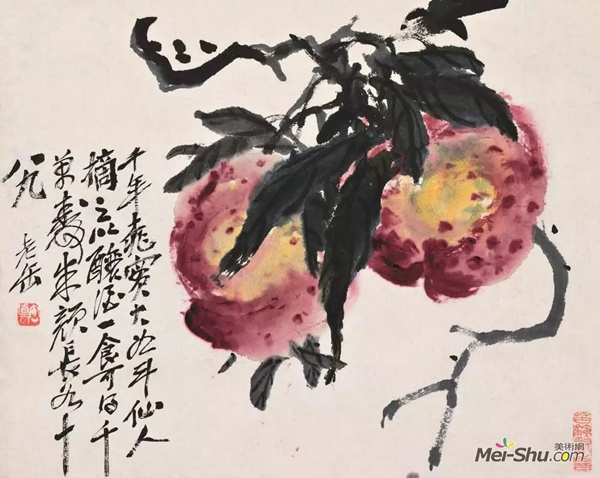 千年桃實大如斗仙人
摘之以釀酒一食可得千
萬壽朱顏長如十
八九
老缶
美術網
Mei-Shu.com